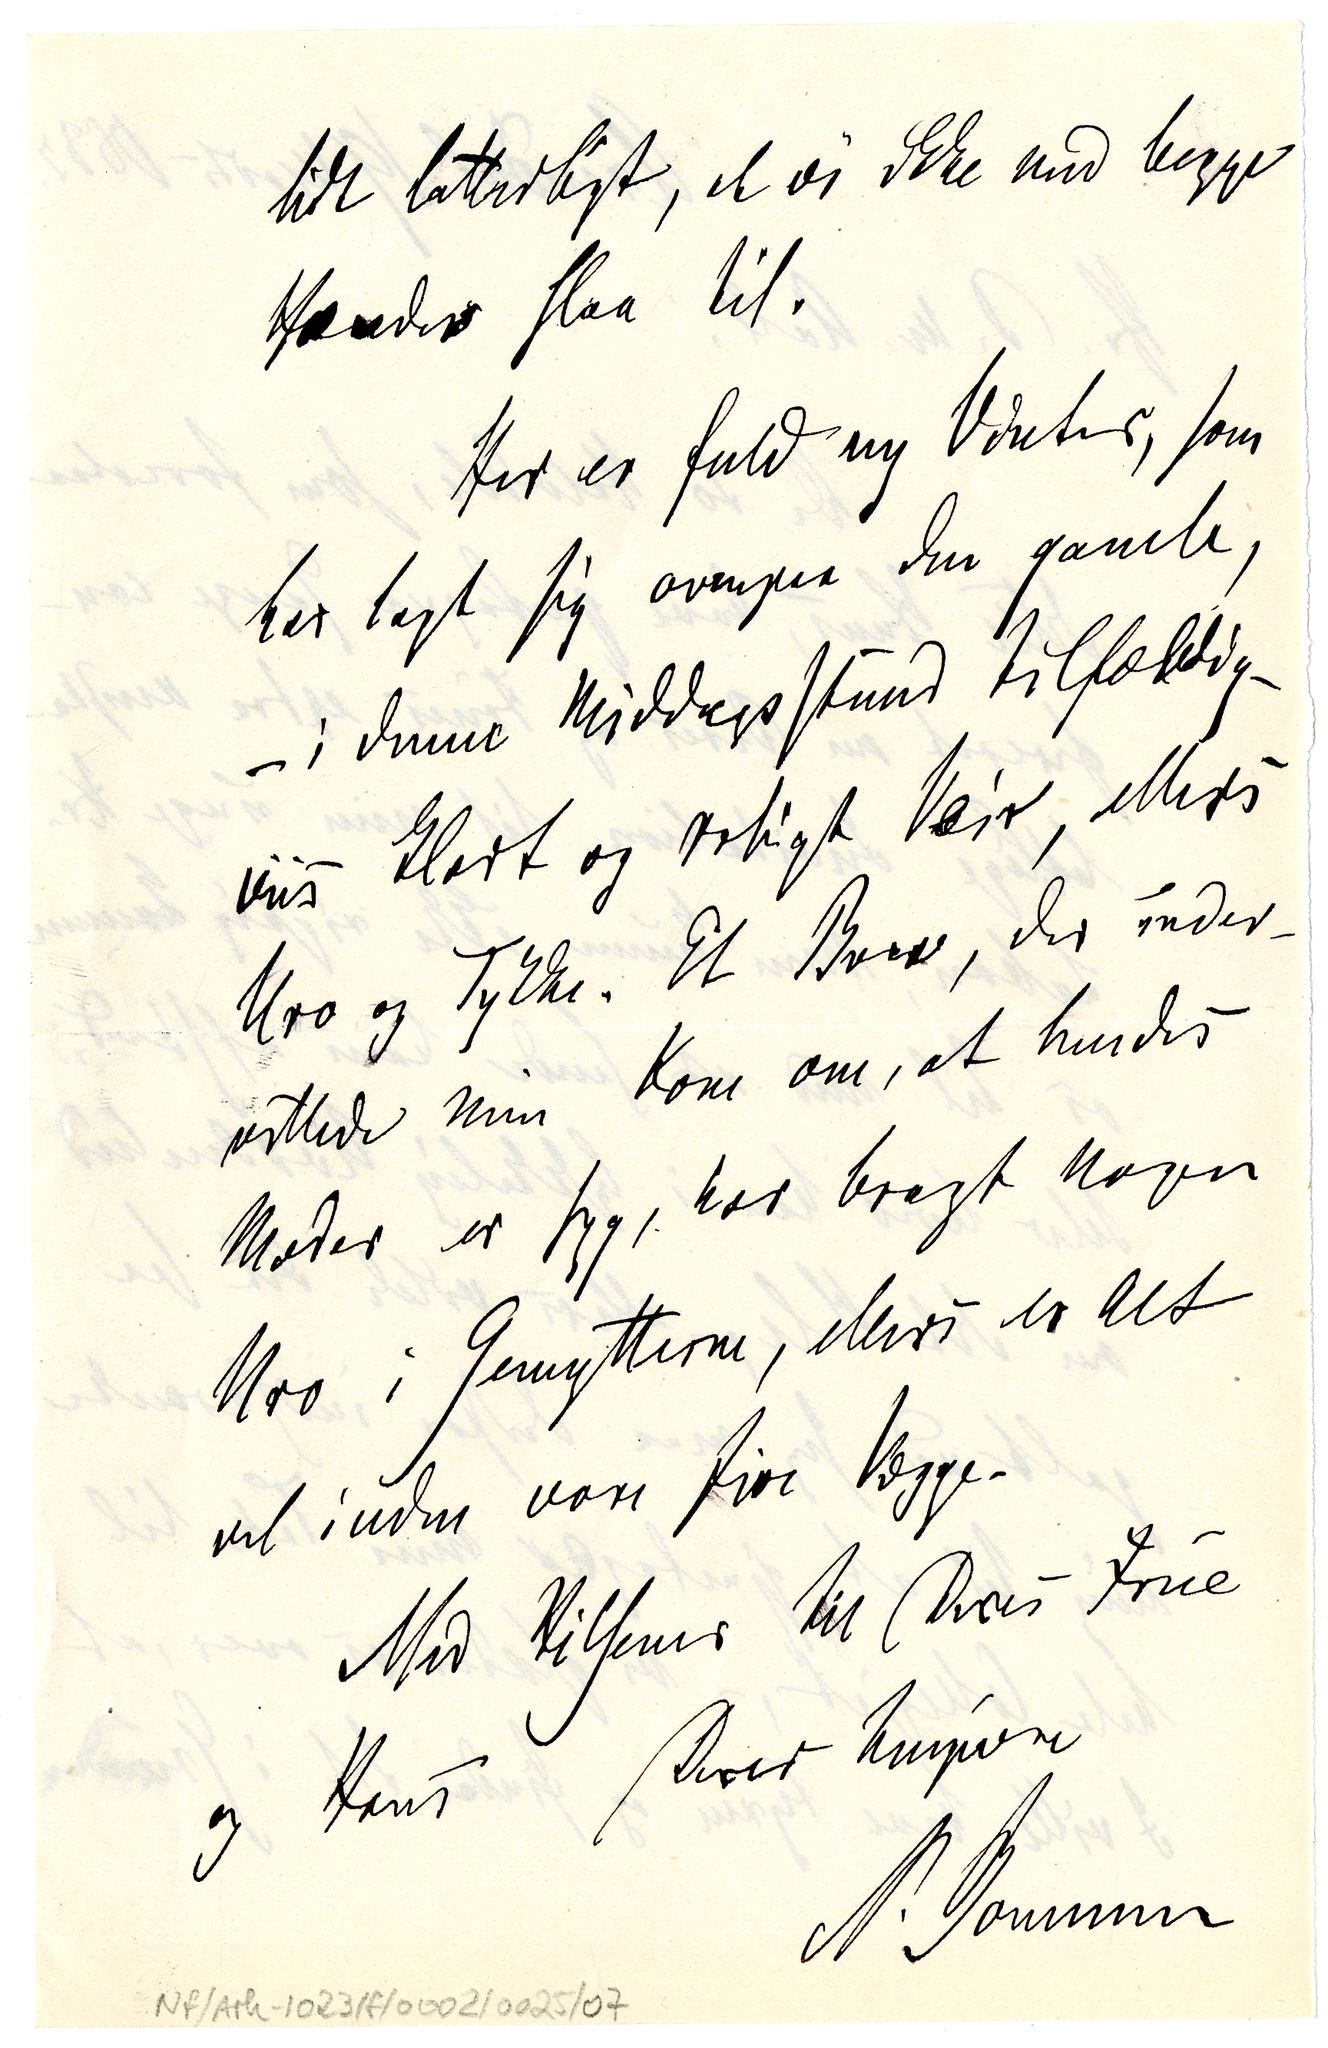 lidt latterligt, at vi ikke med begge
Hænder slaa til.
Her er fuld ny Vinter, som
har lagt sig ovenpaa den gamle,
– i denne Middagsstund tilfældig-
viis klart og roligt Veir, ellers
Uro og Tykke. Et Brev, der under-
rettede min Kone om, at hendes
Moder er syg, har bragt nogen
Uro i Gemytterne, ellers er Alt
vel inden vore fire Vægge.
Med Hilsener til Deres Frue
og Hans Deres hengivne
N.
Nf/Ark-1023/f/0002/0025/07